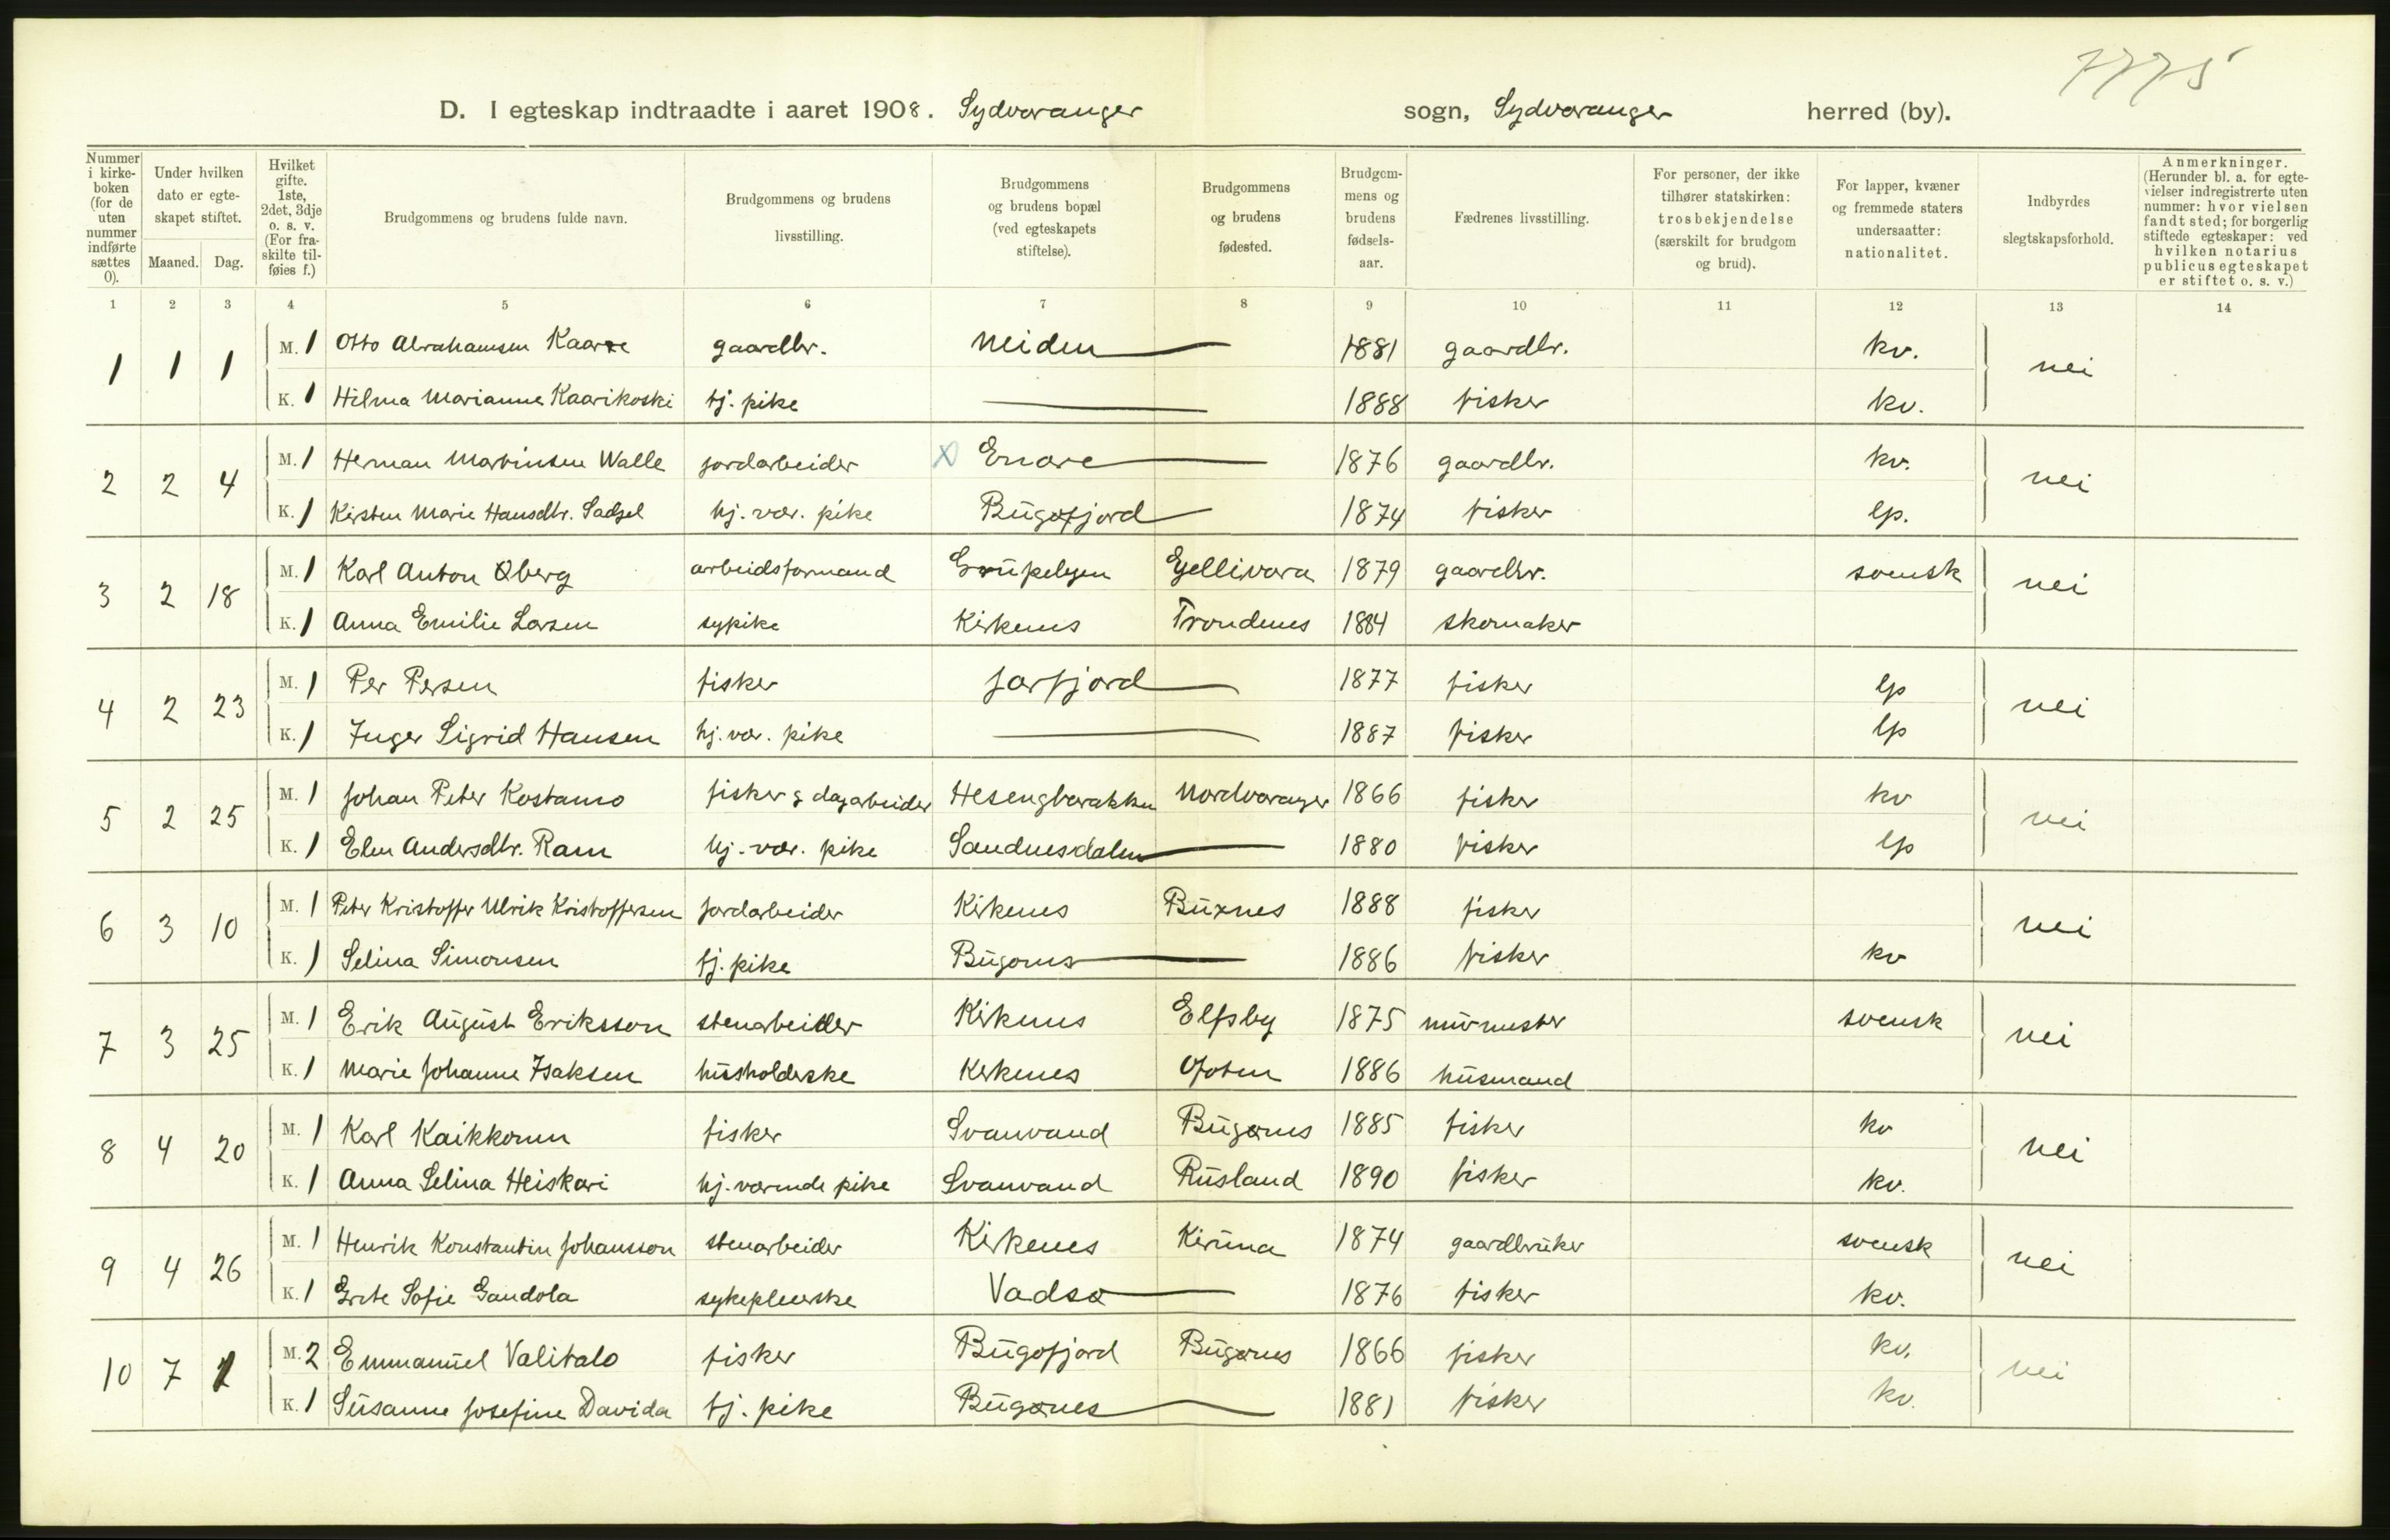 7775
D. I egteskap indtraadte i aaret 1908. Sydvaranger sogn, Sydvaranger herred (by).
Nummer i kirke-boken (for de uten nummer indførte sættes 0).
Under hvilken dato er egte-skapet stiftet.
Maaned. Dag.
Hvilket gifte. 1ste, 2det, 3dje o. s. v. (For fra-skilte til-føies f.)
Brudgommens og brudens fulde navn.
Brudgommens og brudens livsstilling.
Brudgommens og brudens bopæl (ved egteskapets stiftelse).
Brudgommens og brudens fødested.
Brudgom-mens og brudens fødsels-aar.
Fædrenes livsstilling.
For personer, der ikke tilhører statskirken: trosbekjendelse (særskilt for brudgom og brud).
For lapper, kvæner og fremmede staters undersaatter: nationalitet.
Indbyrdes slegtskapsforhold.
Anmerkninger. (Herunder bl. a. for egte-vielser indregistrerte uten nummer: hvor vielsen fandt sted; for borgerlig stiftede egteskaper: ved hvilken notarius publicus egteskapet er stiftet o. s. v.)
1 2 3 4 5 6 7 8 9 10 11 12 13 14
1 1 1 M. 1 Otto Abrahamsen Kaarre gaardbr. Neiden — 1881 gaardbr. kv. nei
K. 1 Hilma Marianne Kaarikoski tj. pike — 1888 fisker kv.
2 2 4 M. 1 Herman Martinsen Walle jordarbeider X Enare — 1876 gaardbr. kv. nei
K. 1 Kirsten Marie Hansdtr. Sadjel hj. vær. pike Bugøfjord — 1874 fisker lp.
3 2 18 M. 1 Karl Anton Øberg arbeidsformand Grupebyen Gellivara 1879 gaardbr. svensk nei
K. 1 Anna Emilie Larsen sypike Kirkenes Trondenes 1884 skomaker
4 2 23 M. 1 Per Persen fisker Jarfjord — 1877 fisker lp nei
K. 1 Inger Sigrid Hansen hj. vær. pike — 1887 fisker lp
5 2 25 M. 1 Johan Peter Kostamo fisker & dagarbeider Hesengbarakken Nordvaranger 1866 fisker kv nei
K. 1 Elen Andersdtr. Ram hj. vær. pike Sandnesdalen — 1880 fisker lp
6 3 10 M. 1 Peter Kristoffer Ulrik Kristoffersen jordarbeider Kirkenes Buxnes 1888 fisker nei
K. 1 Selina Simonsen tj. pike Bugønes — 1886 fisker kv
7 3 25 M. 1 Erik August Eriksson stenarbeider Kirkenes Elfsby 1875 murmester svensk nei
K. 1 Marie Johanne Isaksen husholderske Kirkenes Ofoten 1886 husmand
8 4 20 M. 1 Karl Kaikkonen fisker Svanvand Bugønes 1885 fisker kv nei
K. 1 Anna Selina Heiskari hj. værende pike Svanvand Rusland 1890 fisker kv.
9 4 26 M. 1 Henrik Konstantin Johansson stenarbeider Kirkenes Kiruna 1874 gaardbruker svensk nei
K. 1 Grete Sofie Gandola sykepleierske Vadsø — 1876 fisker kv.
10 7 M. 2 Emmanuel Valitalo fisker Bugøfjord Bugønes 1866 fisker kv. nei
K. 1 Susanne Josefine Davida tj. pike Bugønes — 1881 fisker kv.